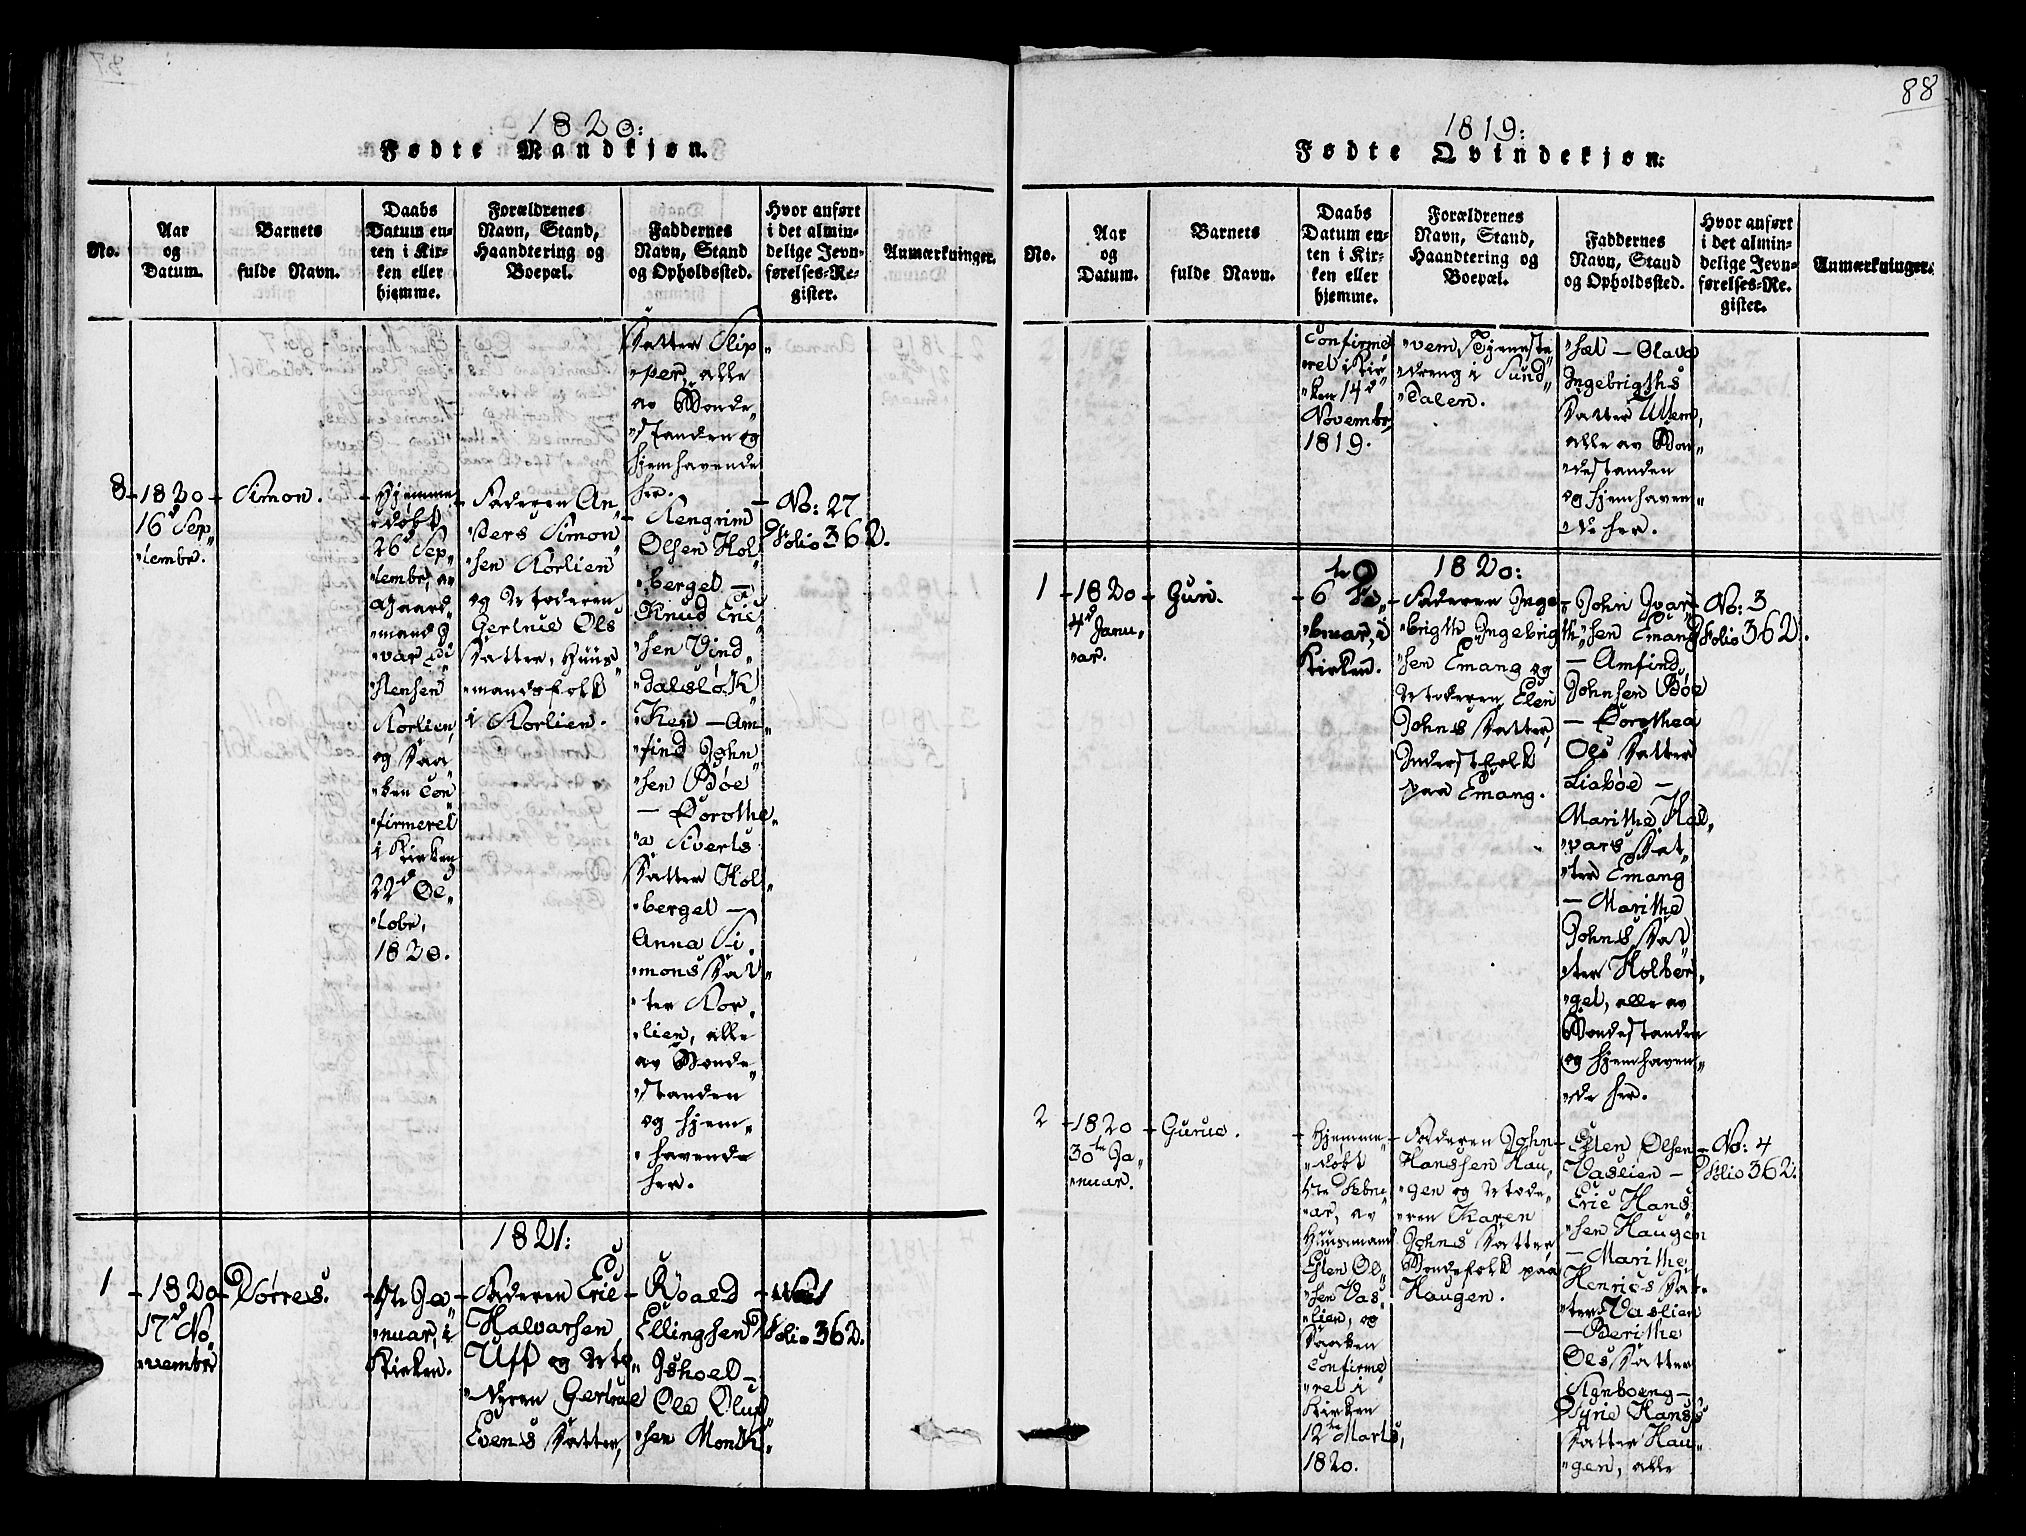 1820:
Fødte Mandkjøn.
No.
Aar
og
Datum.
Barnets
fulde Navn.
Daabs
Datum en-
ten i Kir-
ken eller
hjemme.
Forældrenes
Navn, Stand,
Haandtering og
Boepæl.
Faddernes
Navn, Stand
og Opholdssted.
Hvor anført
i det almin-
delige Jevn-
førelses-Re-
gister.
Anmærkninger.
Datter Slip
"per, alle
av Bonde"
"standen og
hjemhavende
her.
8
1820
16d Sep"
"tembr.
Simon.
Hjemme
"døbt
26d Sep"
"tembr, av
Gaard"
"mand I
"var Ei
"stensen
Korlien,
og Daa"
"ben Con"
"firmeret
i Kirken
22d Oc"
"tobr,
1820.
Faderen An"
"ders Simon"
"sen Korlien
og Moderen
Gertrue Ols
Datter, Huus"
"mandsfolk
i Korlien.
Rengrim
Olsen Hol"
"berget —
Knud Eric"
"sen Vind"
"dalsløk"
iken — Am"
"find John"
"sen Bøe
— Dorothe"
"a Siverts
Datter Hol"
"berget —
Anna Si"
"mons Dat"
"ter Kor"
"lien, alle
av Bonde"
"standen
og hjem"
"havende
her.
No: 27
Folio 362.
1821:
1
1820
17d No"
"vembr
Dørres.
1te Ja"
"nuar, i
Kirken.
Faderen Eric
Halvarsen
Uff og Mo"
"deren Gertrue
Evens Datter,
Roald
Ellingsen
Ishoel —
Ole Oluf"
"sen Monk"
No: 1
Folio 362.
88
1819:
Fødte Qvindekjøn:
No.
Aar
og
Datum.
Barnets
fulde Navn.
Daabs
Datum en-
ten i Kir-
ken eller
hjemme.
Forældrenes
Navn, Stand,
Haandtering og
Boepæl.
Faddernes
Navn, Stand
og Opholdssted.
Hvor anført
i det almin-
delige Jevn-
førelses-Re-
gister.
Anmærkninger.
Confirme"
"ret i Kir"
"ken 14d
Novembr,
1819.
"vem, Tjeneste"
"dreng i Sund"
"dalen.
"sæl — Olava
Ingebrigths
Datter Ullem,
alle av Bon"
"destanden
og hjemhaven"
"de her.
1820:
1
1820
4d Janu"
"ar.
Guri.
6te Fe"
"bruar, i
Kirken.
Faderen Inge"
"brigth Ingebrigth"
"sen Emang og
Moderen Elen
Johns Datter,
Inderstfolk
paa Emang.
John Ivar"
"sen Emang
— Amfind
Johnsen Bøe
— Dorothea
Ols Datter
Liabøe —
Marithe Hal"
"vars Dat"
"ter Emang
— Marithe
Johns Dat"
"ter Holber"
"get, alle av
Bondestanden
og hjemhaven"
"de her.
No: 3
Folio 362.
2
1820
30te Ja"
"nuar.
Gurue.
Hjemme"
"døbt
Febru"
"ar, av
Huusmand
Esten Ol"
"sen Vas"
"lien, og
Daaben
Confirme"
"ret i
Kirken
12te Marts,
1820.
Faderen John
Hanssen Hau"
"gen og Mode"
"ren Karen
Johns Datter
Bondefolk paa
Haugen.
Esten Olsen
Vaslien —
Eric Hans"
"sen Haugen
— Marithe
Henrics Dat"
"ter Vaslien
— Berithe
Ols Datter
—
Syrie Hans
Datter Hau"
"gen, alle
No: 4
Folio 362.